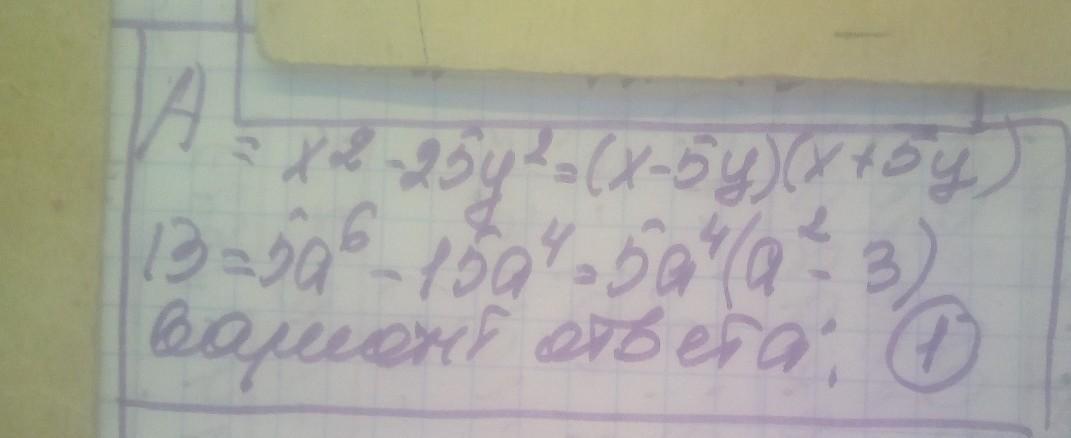 A = x² - 25y² = (x - 5y)(x + 5y)
B = 5a⁶ - 15a⁴ = 5a⁴(a² - 3)
вариант ответа: 1